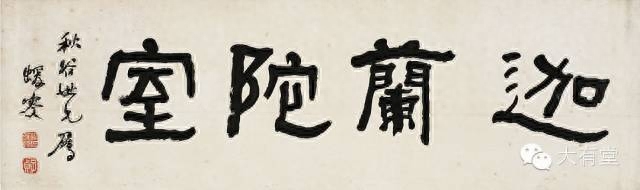 迦蘭陀室
秋谷世兄属
蝯叟
大有堂